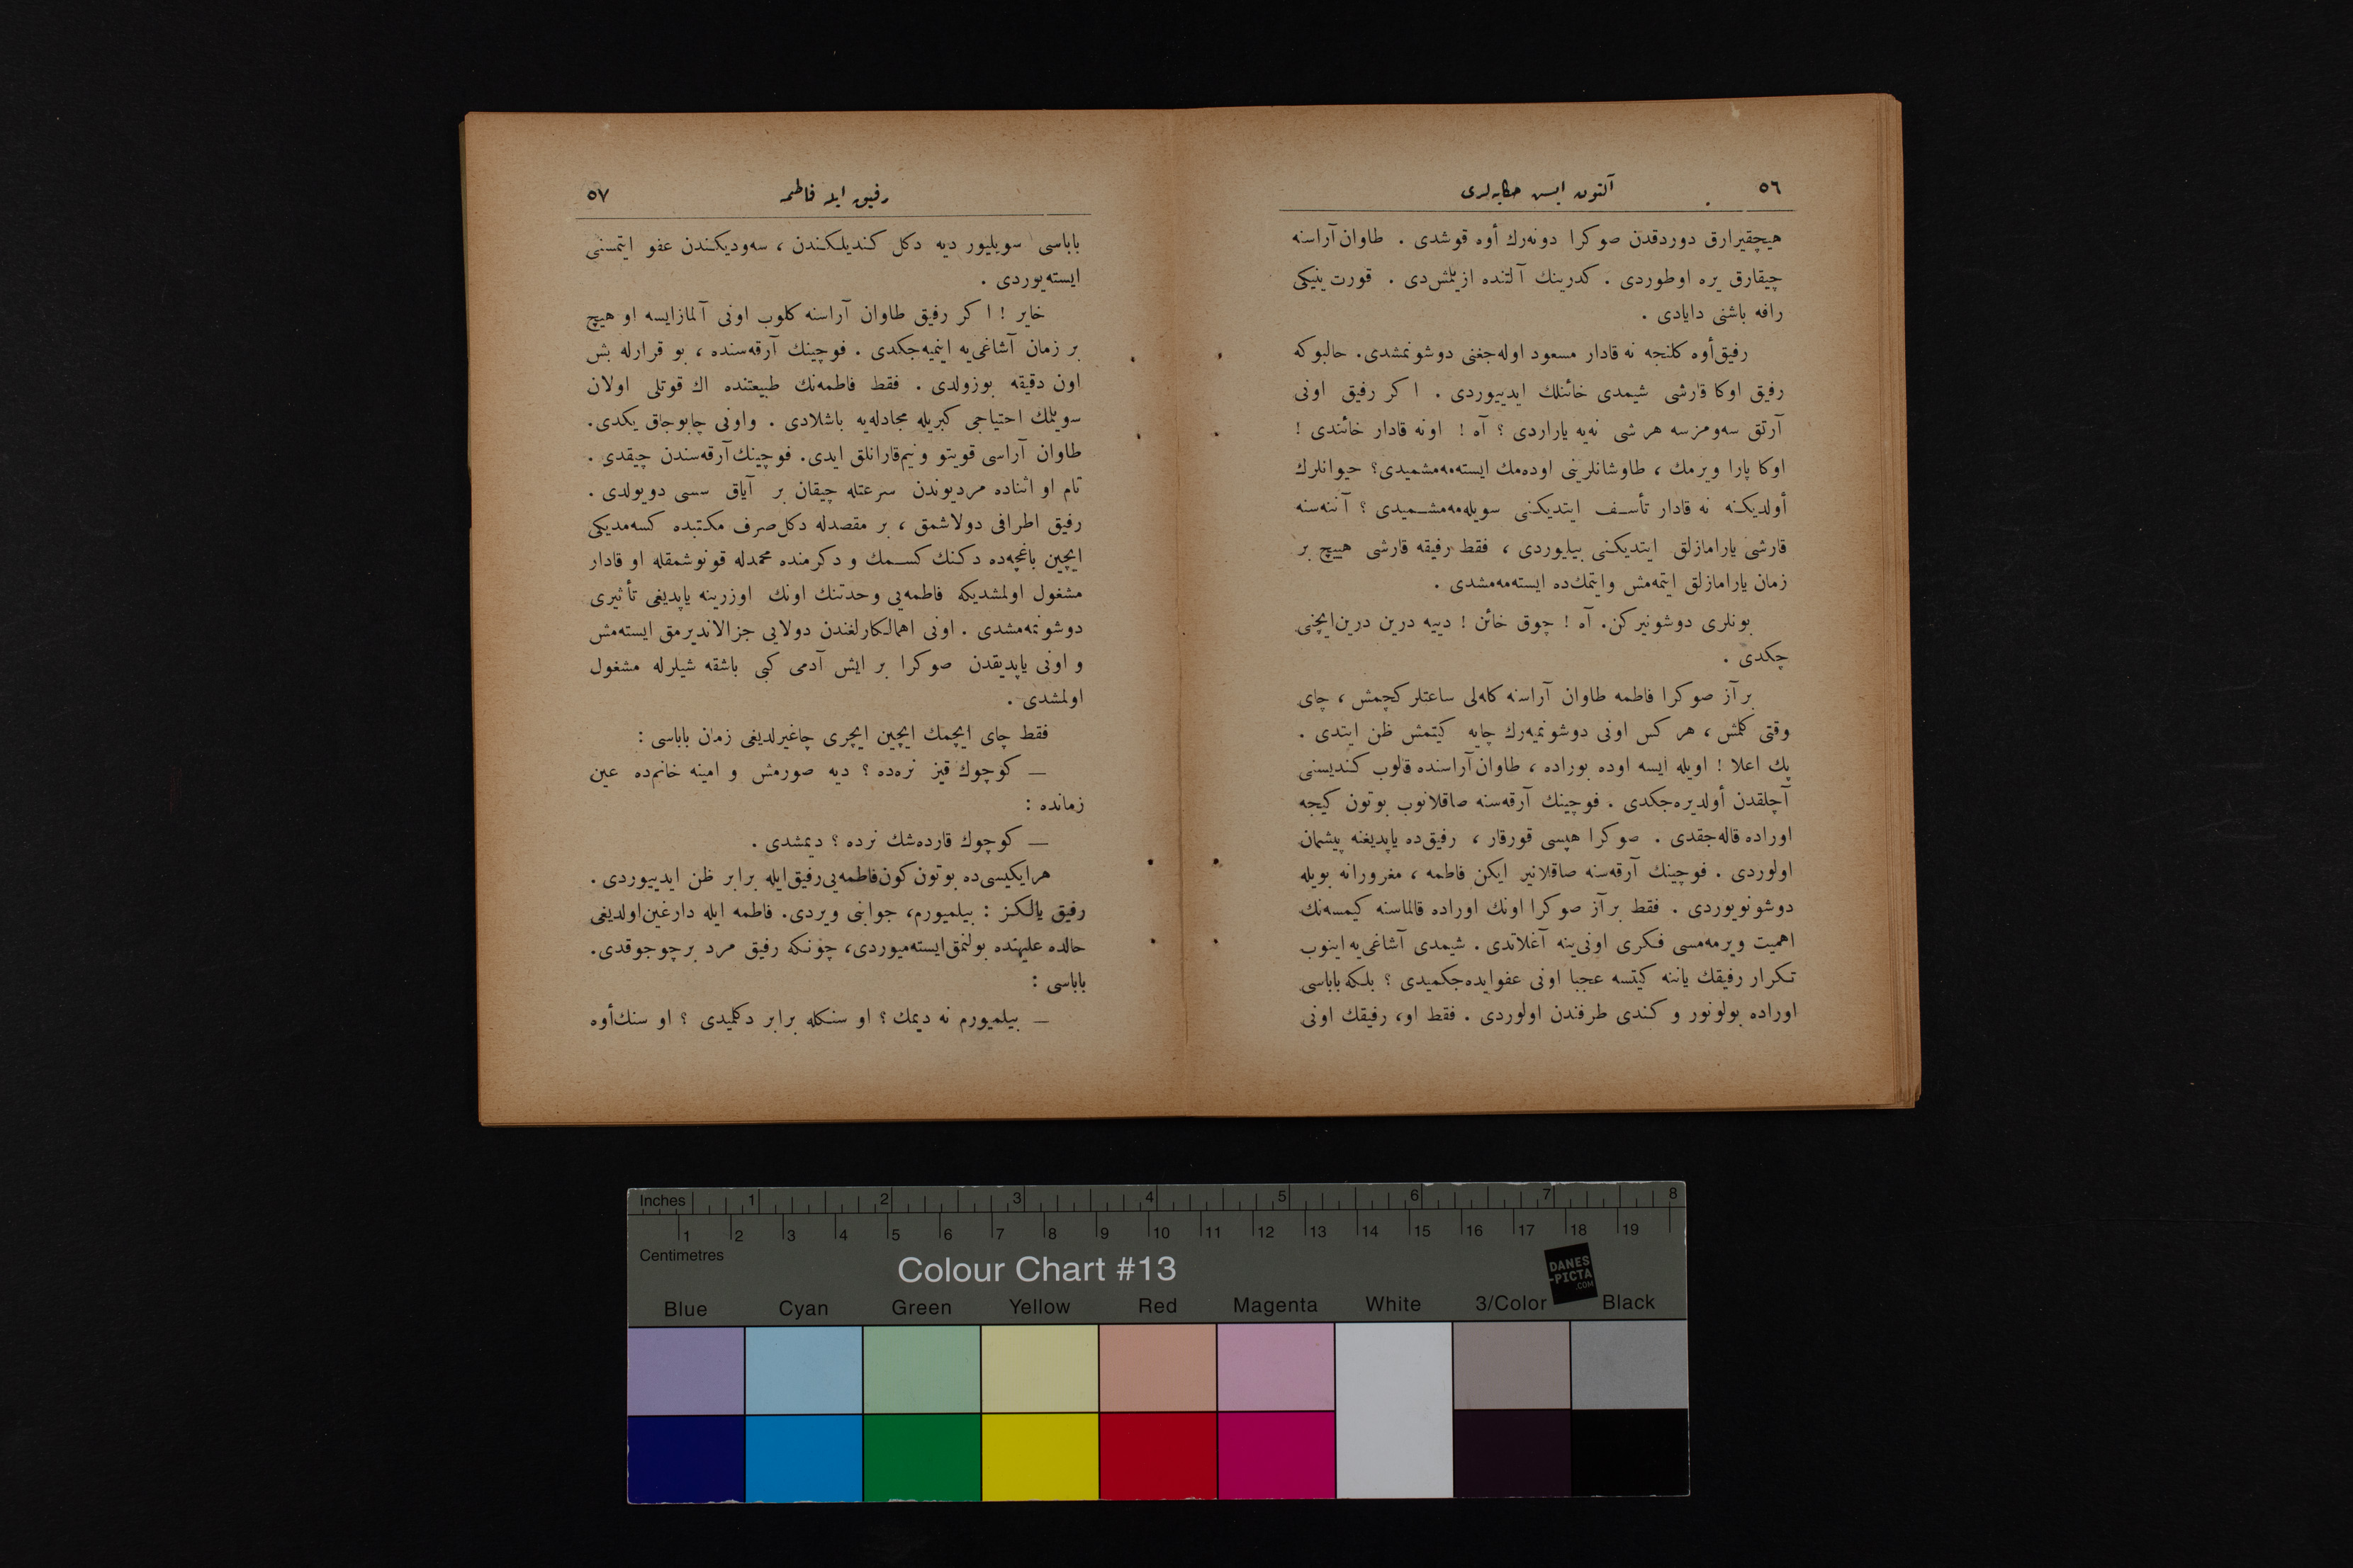 ٥٦
آلتون ايس حكايه‌لری
هيچقيرارق دوردقدن صوكرا دونه‌رك أوه قوشدی . طاوان آراسنه
چيقارق يره اوطوردی . كدرينك آلتنده ازيلمش‌دی . قورت ينيكی
رافه باشنی دايادی .
رفيق أوه كلنجه نه قادار مسعود اوله‌جغنی دوشونمشدی. حالبوكه
رفيق اوكا قارشی شيمدی خائنلك ايدييوردی . اكر رفيق اونی
آرتق سه‌ومزسه هر شی نه‌يه ياراردی ؟ آه ! اونه قادار خائندی !
اوكا پارا ويرمك ، طاوشانلرينی اوده‌مك ايسته‌مه‌مشميدی؟ حيوانلرك
أولديكنه نه قادار تأسف ايتديكنی سويله‌مه‌مشميدی ؟ آننه‌سنه
قارشی يارامازلق ايتديكنی بيليوردی ، فقط رفيقه قارشی هييچ بر
زمان يارامازلق ايتمه‌مش وايتمك‌ده ايسته‌مه‌مشدی .
بونلری دوشونيركن. آه ! چوق خائن ! دييه درين درين‌ايچنی
چكدی .
بر آز صوكرا فاطمه طاوان آراسنه كله‌لی ساعتلر كچمش ، چای
وقتی كلمش ، هر كس اونی دوشونميه‌رك چايه كيتمش ظن ايتدی .
پك اعلا ! اويله ايسه اوده بوراده ، طاوان‌آراسنده قالوب كنديسنی
آچلقدن أولديره‌جكدی . فوچينك آرقه‌سنه صاقلانوب بوتون كيجه
اوراده قاله‌جقدی . صوكرا هپسی قورقار ، رفيق‌ده ياپديغنه پيشمان
اولوردی . فوچينك آرقه‌سنه صاقلانير ايكن فاطمه ، مغرورانه بويله
دوشونويوردی . فقط بر آز صوكرا اونك اوراده قالماسنه كيمسه‌نك
اهميت ويرمه‌مسی فكری اونی‌ينه آغلاتدی . شيمدی آشاغی‌يه اينوب
تكرار رفيقك ياننه كيتسه عجبا اونی عفوايده‌جكميدی ؟ بلكه باباسی
اوراده بولونور و كندی طرفندن اولوردی . فقط او، رفيقك اونی
رفيق ايله فاطمه
٥٧
باباسی سويليور ديه دكل كنديلكندن ، سه‌وديكندن عفو ايتمسنی
ايسته‌يوردی .
خاير ! اكر رفيق طاوان آراسنه كلوب اونی آلمازايسه او هيچ
بر زمان آشاغی‌يه اينميه‌جكدی . فوچينك آرقه‌سنده ، بو قرارله بش
اون دقيقه بوزولدی . فقط فاطمه‌نك طبيعتنده اك قوتلی اولان
سويلمك احتياجی كبريله مجادله‌يه باشلادی . واونی چابوجاق يكدی.
طاوان آراسی قويتو و نيم‌قارانلق ايدی. فوچينك‌آرقه‌سندن چيقدی .
تام او اثناده مرديوندن سرعتله چيقان بر آياق سسی دويولدی .
رفيق اطرافی دولاشمق ، بر مقصدله دكل‌صرف مكتبده كسه‌مديكی
ايچين باغچه‌ده دكنك كسمك و دكرمنده محمدله قونوشمقله او قادار
مشغول اولمشديكه فاطمه‌يی وحدتنك اونك اوزرينه ياپديغی تأثيری
دوشونمه‌مشدی . اونی اهمالكارلغندن دولايی جزالانديرمق ايسته‌مش
و اونی ياپديقدن صوكرا بر ايش آدمی كبی باشقه شيلرله مشغول
اولمشدی .
فقط چای ايچمك ايچين ايچری چاغيرلديغی زمان باباسی :
— كوچوك قيز نره‌ده ؟ ديه صورمش و امينه خانم‌ده عين
زمانده :
— كوچوك قارده‌شك نرده ؟ ديمشدی .
هرايكيسی‌ده بوتون كون‌فاطمه‌يی‌رفيق‌ايله برابر ظن ايدييوردی .
رفيق يالكز : بيلميورم، جوابنی ويردی. فاطمه ايله دارغين‌اولديغی
حالده عليهنده بولنمق‌ايسته‌ميوردی، چونكه رفيق مرد برچوجوقدی.
باباسی :
— بيلميورم نه ديمك ؟ او سنكله برابر دكلميدی ؟ او سنك‌أوه
Inches 1 2 3 4 5 6 7 8
1 2 3 4 5 6 7 8 9 10 11 12 13 14 15 16 17 18 19
Centimetres
Colour Chart #13
DANES
-PICTA
.COM
Blue Cyan Green Yellow Red Magenta White 3/Color Black